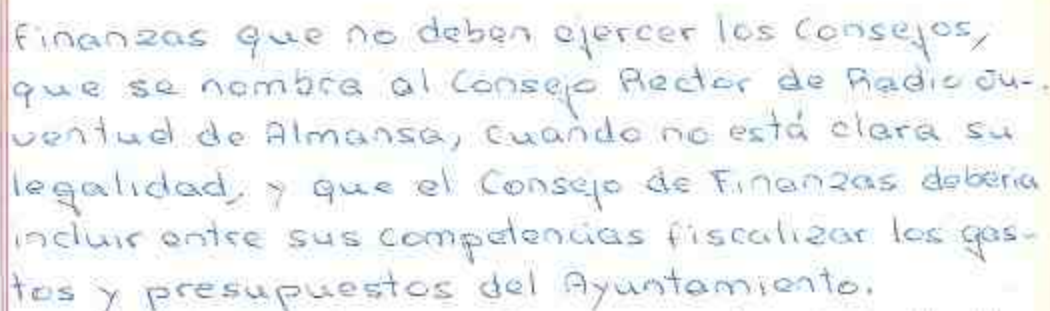 finanzas que no deben ejercer los Consejos,
que se nombra al Consejo Rector de Radio Ju-
ventud de Almansa, cuando no está clara su
legalidad, y que el Consejo de Finanzas deberia
incluir entre sus competencias fiscalizar los gas-
tos y presupuestos del Ayuntamiento.